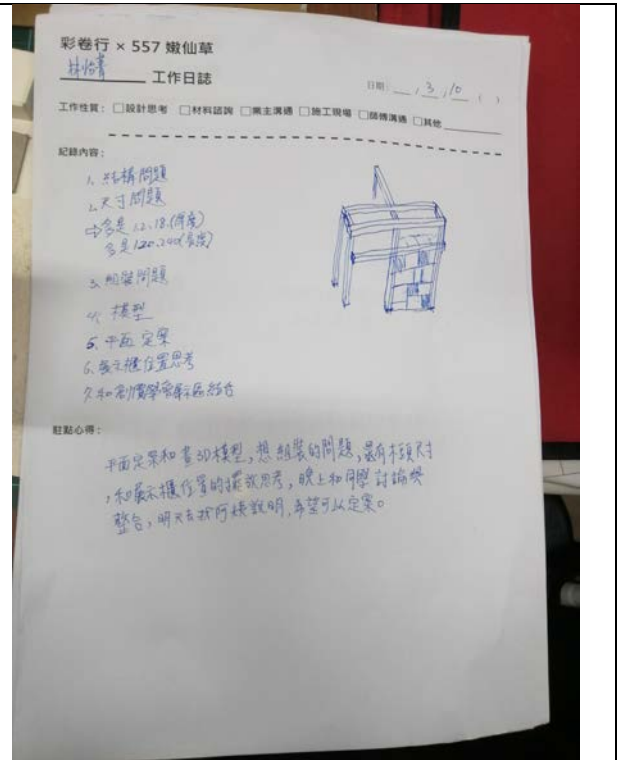 彩卷行 × 557 嫩仙草
林怡 工作日誌
日期: __ / 3 / 10 ( )
工作性質: □設計思考 □材料諮詢 □業主溝通 □施工現場 □師傅溝通 □其他
紀錄內容:
1. 結構問題
2. 尺寸問題
⇨多是12、18.(厚度)
多是120、240(長度)
3. 組裝問題
4. 模型
5. 平面定案
6. 展示櫃位置思考
7. 和創價學會展示區結合
駐點心得:
平面定案和畫3D模型,想組裝的問題,還有木頭尺寸
,和展示櫃位置的擺放思考,晚上和同學討論與
整合,明天去找阿 說明,希望可以定案。